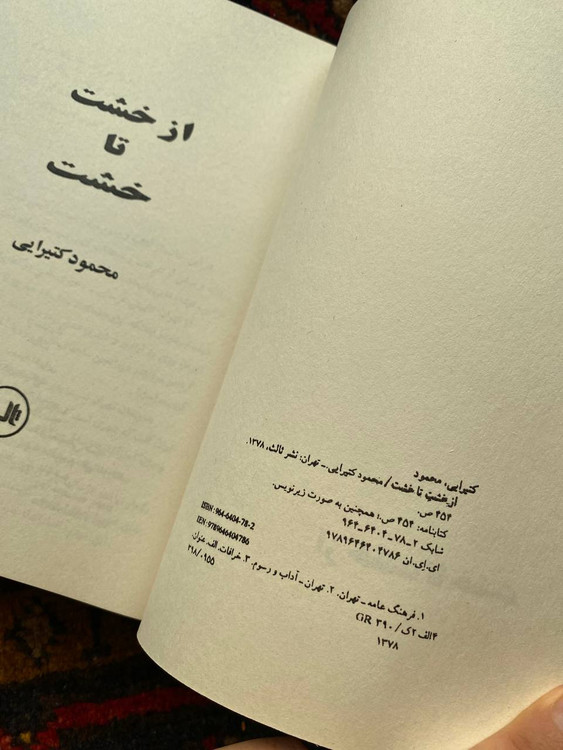 از خشت
تا
خشت
محمود کتیرایی
ثالث
کتیرایی، محمود
از خشت تا خشت / محمود کتیرایی. ـ تهران: نشر ثالث، ۱۳۷۸.
۴۵۴ ص.
کتابنامه: ۴۵۴ ص؛ همچنین به صورت زیرنویس.
شابک ۲-۷۸-۶۴۰۴-۹۶۴
ای.ای.ان ۹۷۸۹۶۴۶۴۰۴۷۸۶
ISBN: 964-6404-78-2
EEN: 9789646404786
۱. فرهنگ عامه ـ تهران. ۲. تهران ـ آداب و رسوم. ۳. خرافات. الف. عنوان.
۳۹۸/۰۹۵۵
۴الف ۲ک / GR ۲۹۰
۱۳۷۸